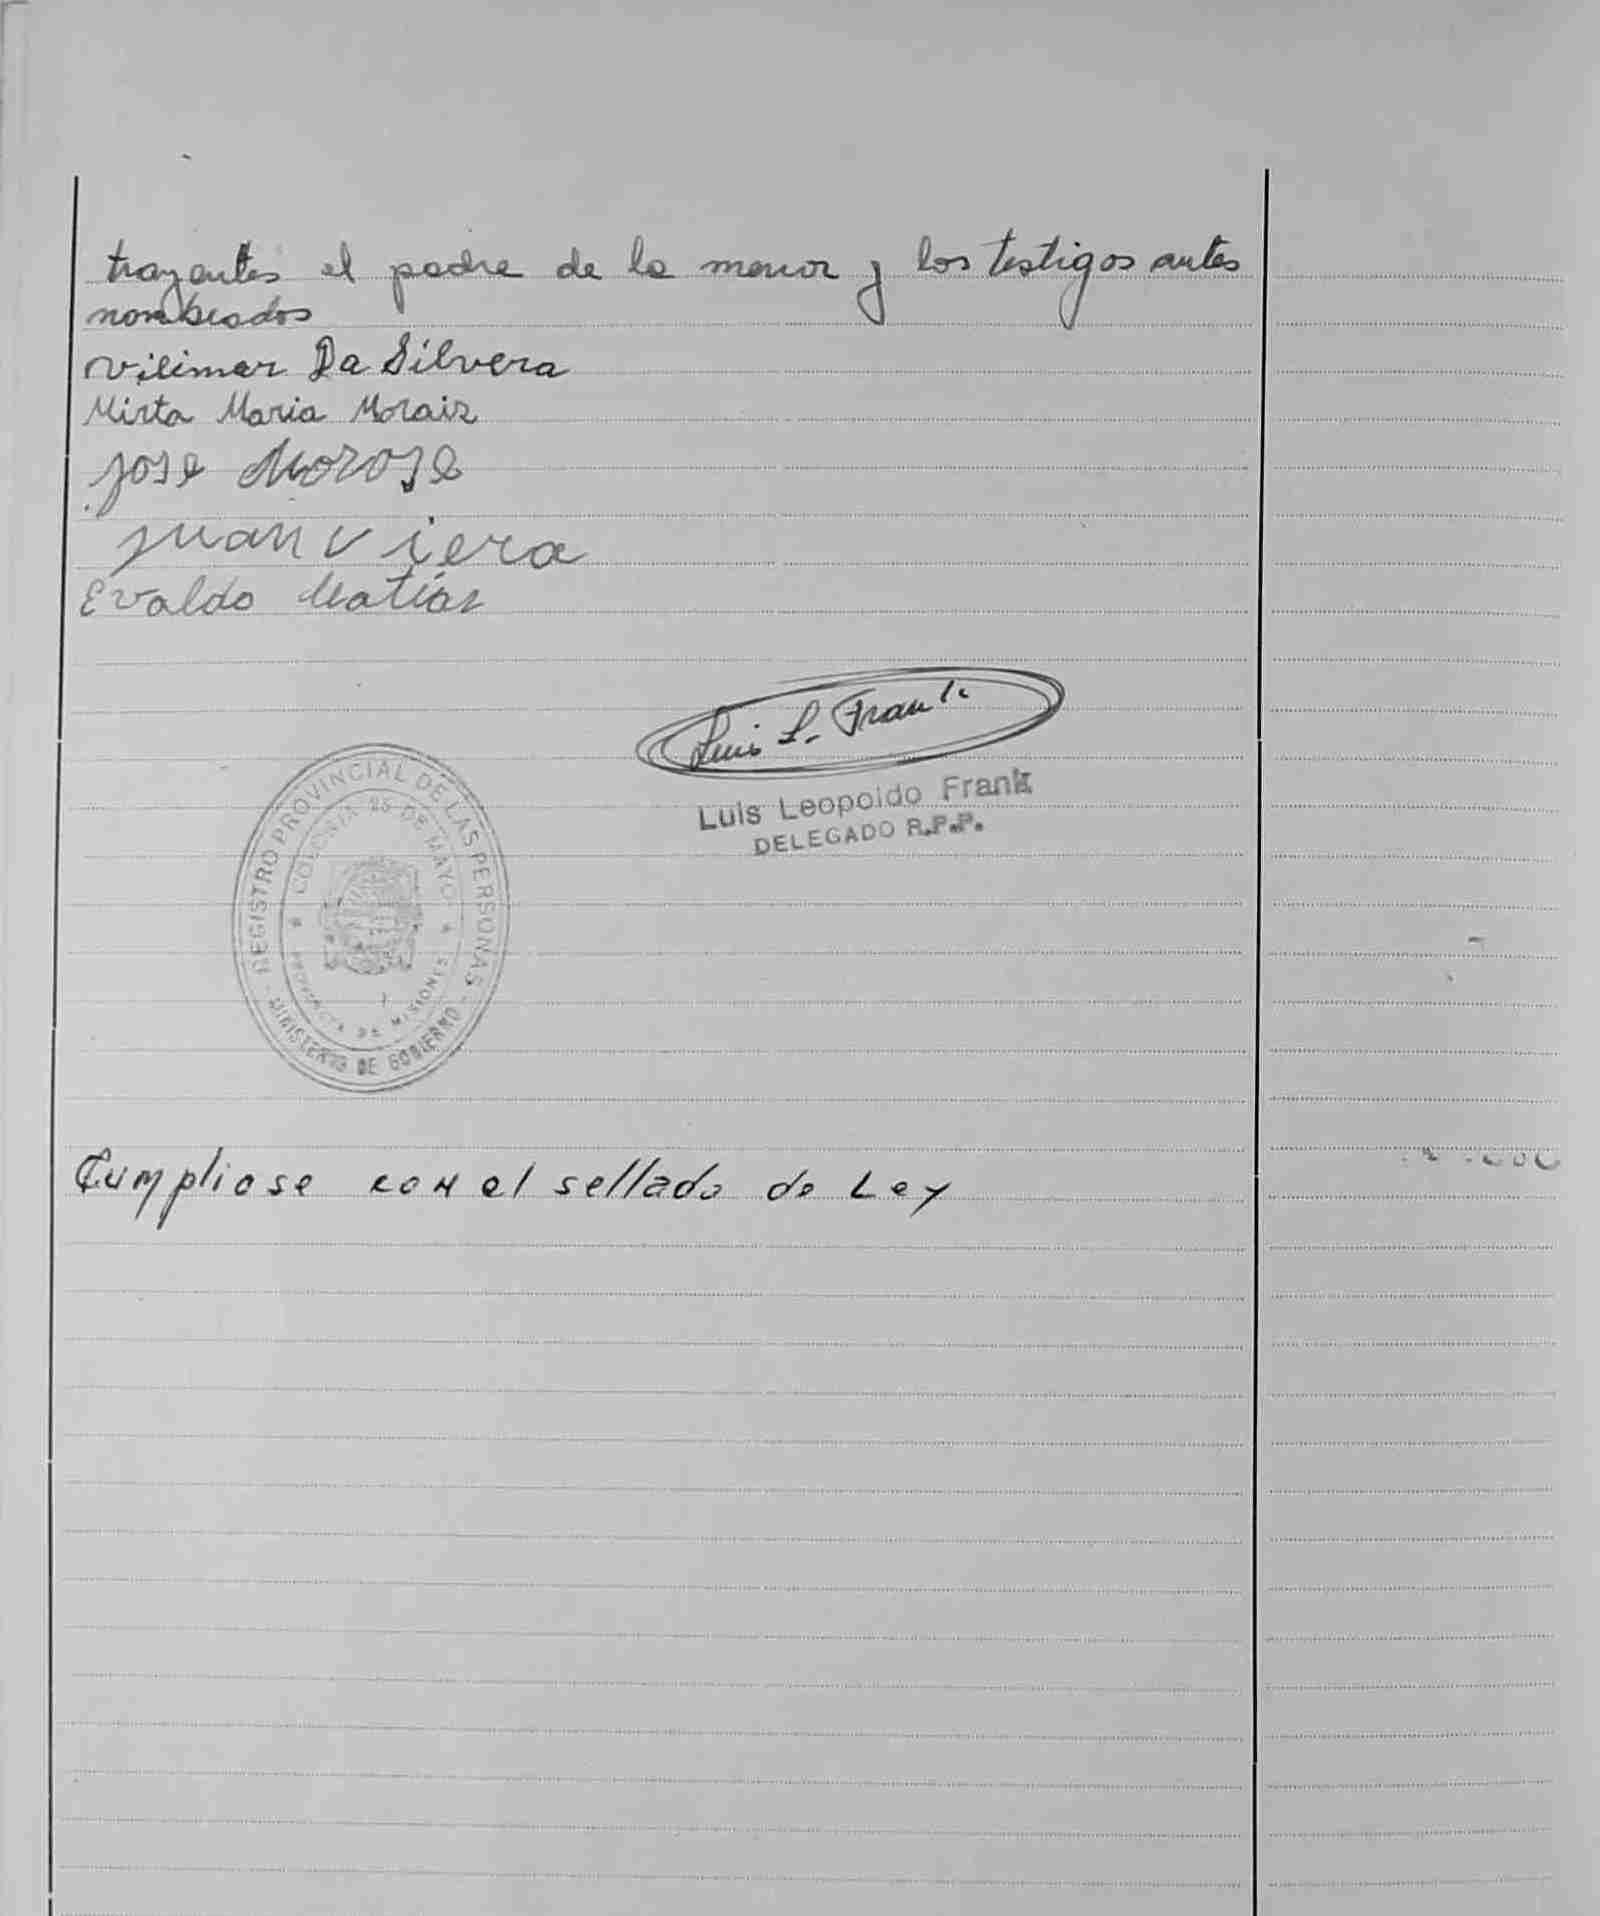 trayentes el padre de la menor y los testigos antes
nombrados
Vilimar Da Silvera
Mirta Maria Morais
jose Morose
juan viera
Evaldo Matías
Luis L. Frank
Luis Leopoldo Frank
DELEGADO R.P.P.
REGISTRO PROVINCIAL DE LAS PERSONAS
COLONIA 25 DE MAYO
PROVINCIA DE MISIONES
MINISTERIO DE GOBIERNO
Cumpliose con el sellado de Ley